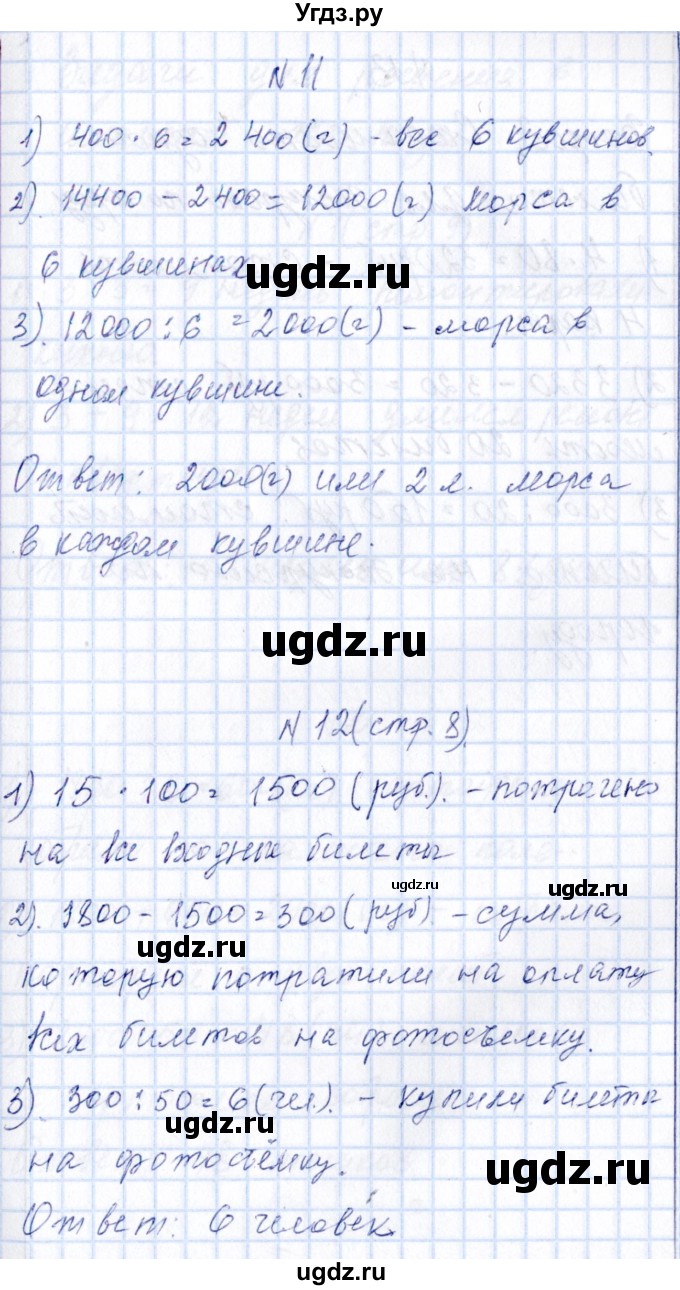 Угдз.ру
N 11
1) 400 · 6 = 2 400 (г) - все 6 кувшинов.
2). 14400 - 2400 = 12000 (г) морса в
6 кувшинах
ugdz.ru
3). 12000 : 6 = 2000 (г) - морса в
одном кувшине.
Ответ: 2000 (г) или 2 л. морса
в каждом кувшине.
ugdz.ru
N 12 (стр. 8).
1) 15 · 100 = 1500 (руб.). - потрачено
на все входные билеты
ugdz.ru
ugdz.ru
2). 1800 - 1500 = 300 (руб). - сумма,
ugdz.ru
которую потратили на оплату
всех билетов на фотосъемку.
3). 300 : 50 = 6 (чел.). - купили билеты
ugdz.ru
на фотосъёмку.
ugdz.ru
Ответ: 6 человек.
ugdz.ru